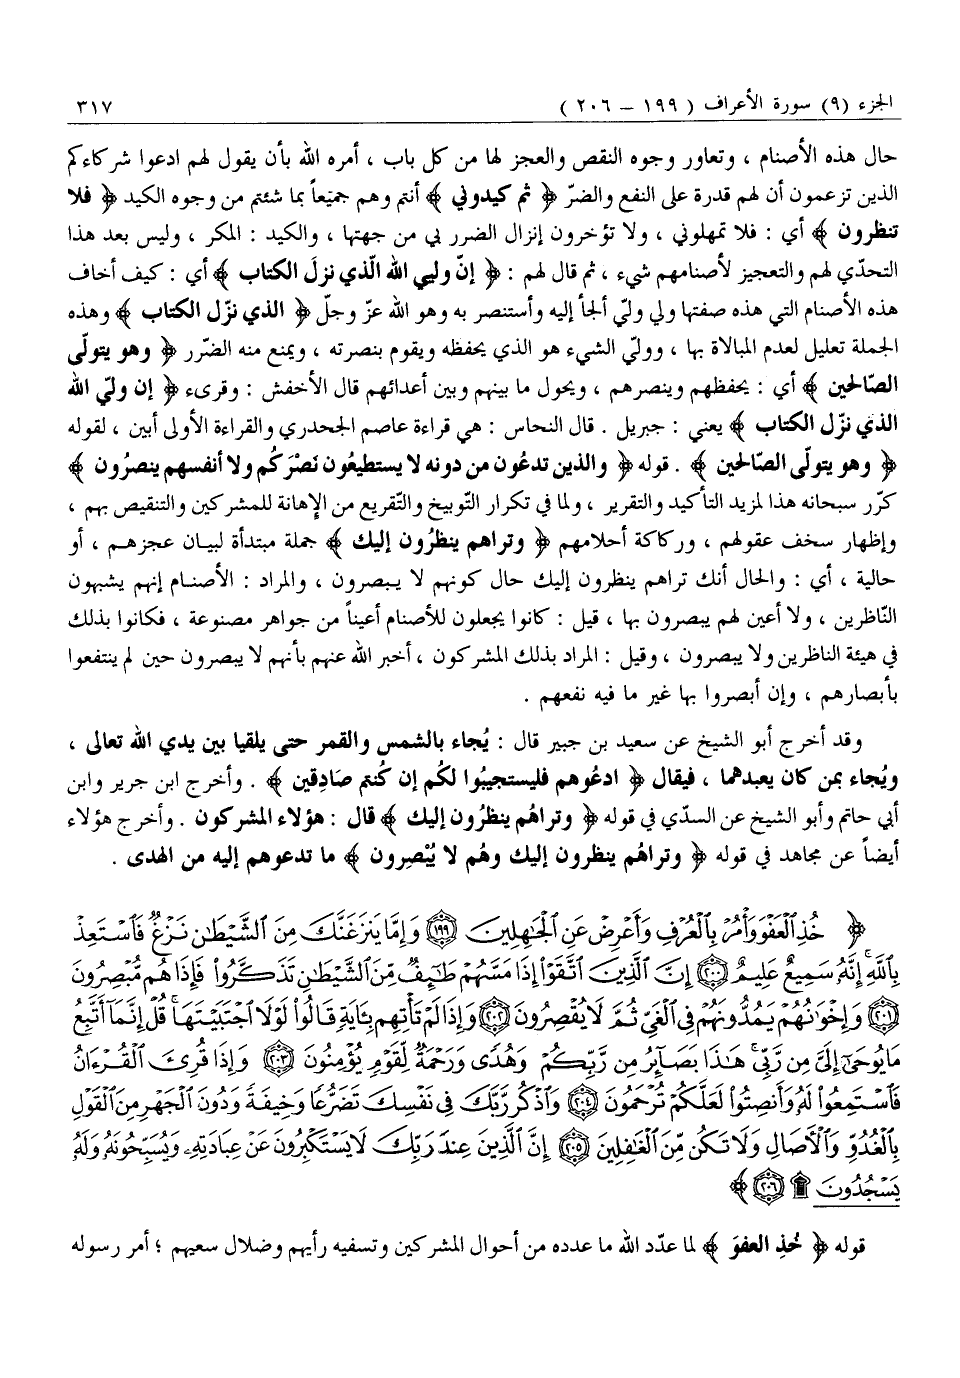 الجزء (٩) سورة الأعراف ( ١٩٩ – ٢٠٦ ) ٣١٧
حال هذه الأصنام ، وتعاور وجوه النقص والعجز لها من كل باب ، أمره الله بأن يقول لهم ادعوا شركاءكم
الذين تزعمون أن لهم قدرة على النفع والضرّ ﴿ ثم كيدوني ﴾ أنتم وهم جميعاً بما شئتم من وجوه الكيد ﴿ فلا
تنظرون ﴾ أي : فلا تمهلوني ، ولا تؤخرون إنزال الضرر بي من جهتها ، والكيد : المكر ، وليس بعد هذا
التحدّي لهم والتعجيز لأصنامهم شيء ، ثم قال لهم : ﴿ إنّ وليي الله الّذي نزلَ الكتاب ﴾ أي : كيف أخاف
هذه الأصنام التي هذه صفتها ولي وليّ ألجأ إليه وأستنصر به وهو الله عزّ وجلّ ﴿ الذي نزّل الكتاب ﴾ وهذه
الجملة تعليل لعدم المبالاة بها ، ووليّ الشيء هو الذي يحفظه ويقوم بنصرته ، ويمنع منه الضّرر ﴿ وهو يتولّى
الصّالحين ﴾ أي : يحفظهم وينصرهم ، ويحول ما بينهم وبين أعدائهم قال الأخفش : وقرىء ﴿ إن وليّ الله
الذي نزّل الكتاب ﴾ يعني : جبريل . قال النحاس : هي قراءة عاصم الجحدري والقراءة الأولى أبين ، لقوله
﴿ وهو يتولّى الصّالحين ﴾ . قوله ﴿ والذين تدعُون من دونه لا يستطيعُون نَصْرَكُم ولا أنفسهم ينصرُون ﴾
كرّر سبحانه هذا لمزيد التأكيد والتقرير ، ولما في تكرار التّوبيخ والتّقريع من الإهانة للمشركين والتنقيص بهم ،
وإظهار سخف عقولهم ، وركاكة أحلامهم ﴿ وتراهم ينظرُون إليك ﴾ جملة مبتدأة لبيان عجزهم ، أو
حالية ، أي : والحال أنك تراهم ينظرون إليك حال كونهم لا يبصرون ، والمراد : الأصنام إنهم يشبهون
النّاظرين ، ولا أعين لهم يبصرون بها ، قيل : كانوا يجعلون للأصنام أعيناً من جواهر مصنوعة ، فكانوا بذلك
في هيئة الناظرين ولا يبصرون ، وقيل : المراد بذلك المشركون ، أخبر الله عنهم بأنهم لا يبصرون حين لم ينتفعوا
بأبصارهم ، وإن أبصروا بها غير ما فيه نفعهم .
وقد أخرج أبو الشيخ عن سعيد بن جبير قال : يُجاء بالشمس والقمر حتى يلقيا بين يدي الله تعالى ،
ويُجاء بمن كان يعبدهما ، فيقال ﴿ ادعُوهم فليستجيبُوا لكُم إن كُنتم صَادِقين ﴾ . وأخرج ابن جرير وابن
أبي حاتم وأبو الشيخ عن السدّي في قوله ﴿ وتراهُم ينظرُون إليك ﴾ قال : هؤلاء المشركون . وأخرج هؤلاء
أيضاً عن مجاهد في قوله ﴿ وتراهُم ينظرون إليك وهُم لا يُبْصِرون ﴾ ما تدعوهم إليه من الهدى .
﴿ خُذِ ٱلْعَفْوَ وَأْمُرْ بِٱلْعُرْفِ وَأَعْرِضْ عَنِ ٱلْجَٰهِلِينَ ١٩٩ وَإِمَّا يَنزَغَنَّكَ مِنَ ٱلشَّيْطَٰنِ نَزْغٌ فَٱسْتَعِذْ
بِٱللَّهِ إِنَّهُۥ سَمِيعٌ عَلِيمٌ ٢٠٠ إِنَّ ٱلَّذِينَ ٱتَّقَوْا۟ إِذَا مَسَّهُمْ طَٰٓئِفٌ مِّنَ ٱلشَّيْطَٰنِ تَذَكَّرُوا۟ فَإِذَا هُم مُّبْصِرُونَ
٢٠١ وَإِخْوَٰنُهُمْ يَمُدُّونَهُمْ فِى ٱلْغَىِّ ثُمَّ لَا يُقْصِرُونَ ٢٠٢ وَإِذَا لَمْ تَأْتِهِم بِـَٔايَةٍ قَالُوا۟ لَوْلَا ٱجْتَبَيْتَهَا قُلْ إِنَّمَآ أَتَّبِعُ
مَا يُوحَىٰٓ إِلَىَّ مِن رَّبِّى هَٰذَا بَصَآئِرُ مِن رَّبِّكُمْ وَهُدًى وَرَحْمَةٌ لِّقَوْمٍ يُؤْمِنُونَ ٢٠٣ وَإِذَا قُرِئَ ٱلْقُرْءَانُ
فَٱسْتَمِعُوا۟ لَهُۥ وَأَنصِتُوا۟ لَعَلَّكُمْ تُرْحَمُونَ ٢٠٤ وَٱذْكُر رَّبَّكَ فِى نَفْسِكَ تَضَرُّعًا وَخِيفَةً وَدُونَ ٱلْجَهْرِ مِنَ ٱلْقَوْلِ
بِٱلْغُدُوِّ وَٱلْءَاصَالِ وَلَا تَكُن مِّنَ ٱلْغَٰفِلِينَ ٢٠٥ إِنَّ ٱلَّذِينَ عِندَ رَبِّكَ لَا يَسْتَكْبِرُونَ عَنْ عِبَادَتِهِۦ وَيُسَبِّحُونَهُۥ وَلَهُۥ
يَسْجُدُونَ ۩ ٢٠٦ ﴾
قوله ﴿ خُذِ العفوَ ﴾ لما عدّد الله ما عدده من أحوال المشركين وتسفيه رأيهم وضلال سعيهم ؛ أمر رسوله